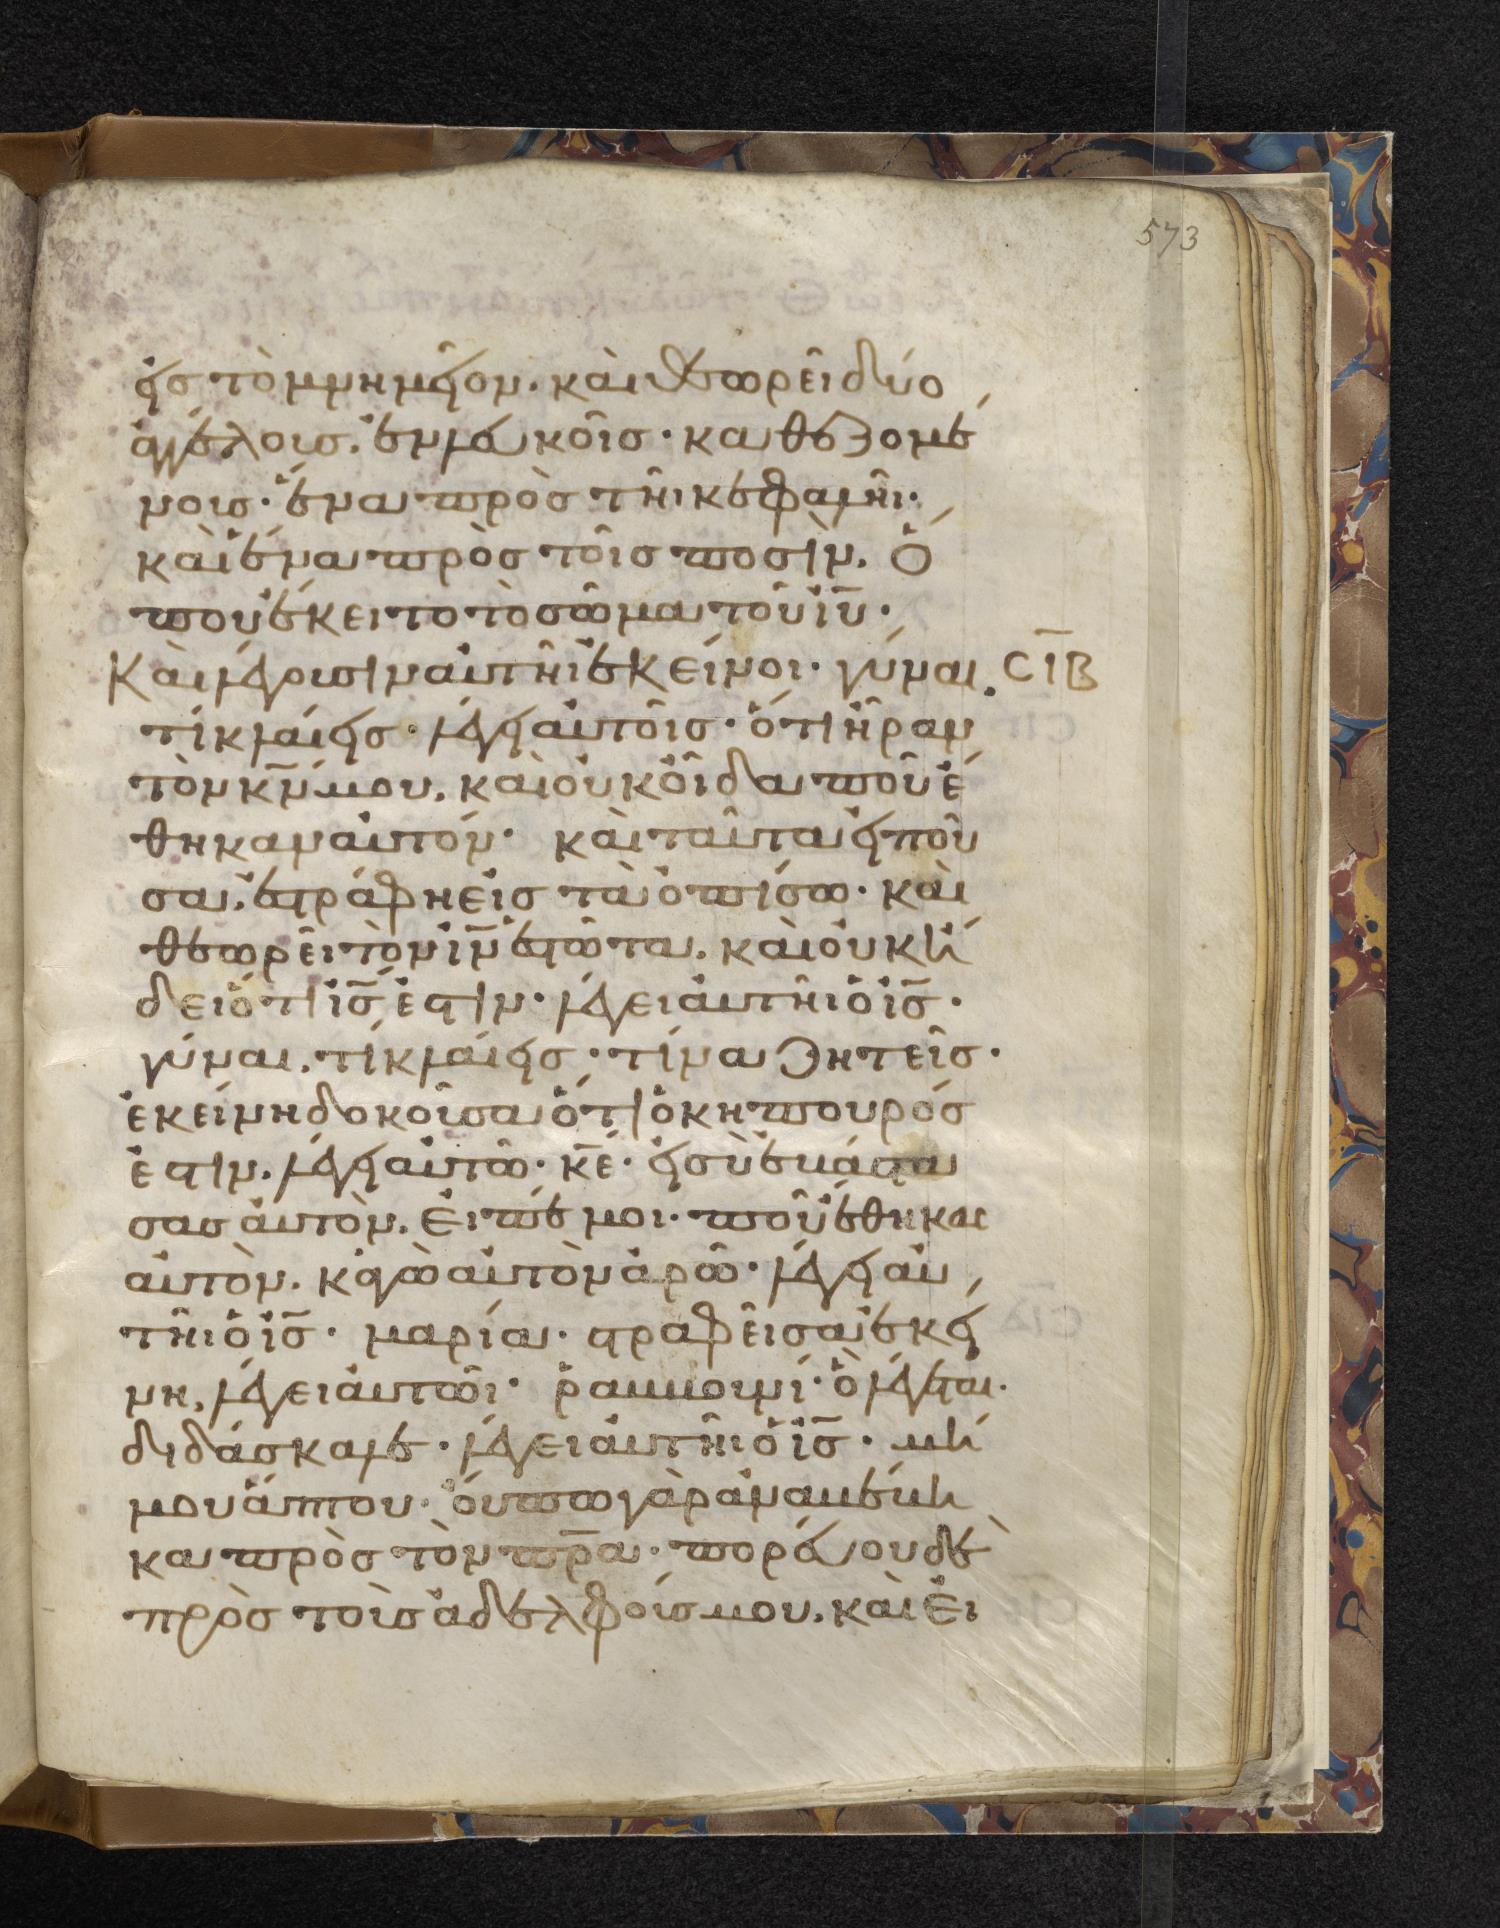 573
εἰς τὸ μνημεῖον· καὶ θεωρεῖ δύο
ἀγγέλους. ἐν λευκοῖς· καθεζομέ
νους· ἕνα πρὸς τῆι κεφαλῆι·
καὶ ἕνα πρὸς τοῖς ποσίν. ὅ
που ἔκειτο τὸ σῶμα τοῦ ἰῡ·
Καὶ λέγουσιν αὐτῆι ἐκεῖνοι· γύναι. CĪB
τί κλαίεις· λέγει αὐτοῖς· ὅτι ἦραν
τὸν κν̄ μου. καὶ οὐκ οἶδα ποῦ ἔ
θηκαν αὐτόν· καὶ ταῦτα εἰποῦ
σα. ἐστράφη εἰς τὰ ὀπίσω· καὶ
θεωρεῖ τὸν ἰν̄ ἑστῶτα. καὶ οὐκ ἤ
δει ὅτι ἰς̄ ἐστιν· λέγει αὐτῆι ὁ ἰς̄·
γύναι. τί κλαίεις· τίνα ζητεῖς·
ἐκείνη δοκοῦσα ὅτι ὁ κηπουρός
ἐστιν. λέγει αὐτῶ· κε̄· εἰ σὺ ἐβάστα
σας αὐτὸν. εἰπέ μοι· ποῦ ἔθηκας
αὐτὸν. κἀγὼ αὐτὸν ἀρῶ· λέγει αὐ
τῆι ὁ ἰς̄· μαρία· στραφεῖσα ἐκεί
νη. λέγει αὐτῶι· ῥαββουνί· ὃ λέγεται·
διδάσκαλε· λέγει αὐτῆι ὁ ἰς̄· μή
μου ἅπτου· οὔπω γὰρ ἀναβέβη
κα πρὸς τὸν πρ̄α· πορεύου δὲ
πρὸς τοὺς ἀδελφούς μου. καὶ εἰ